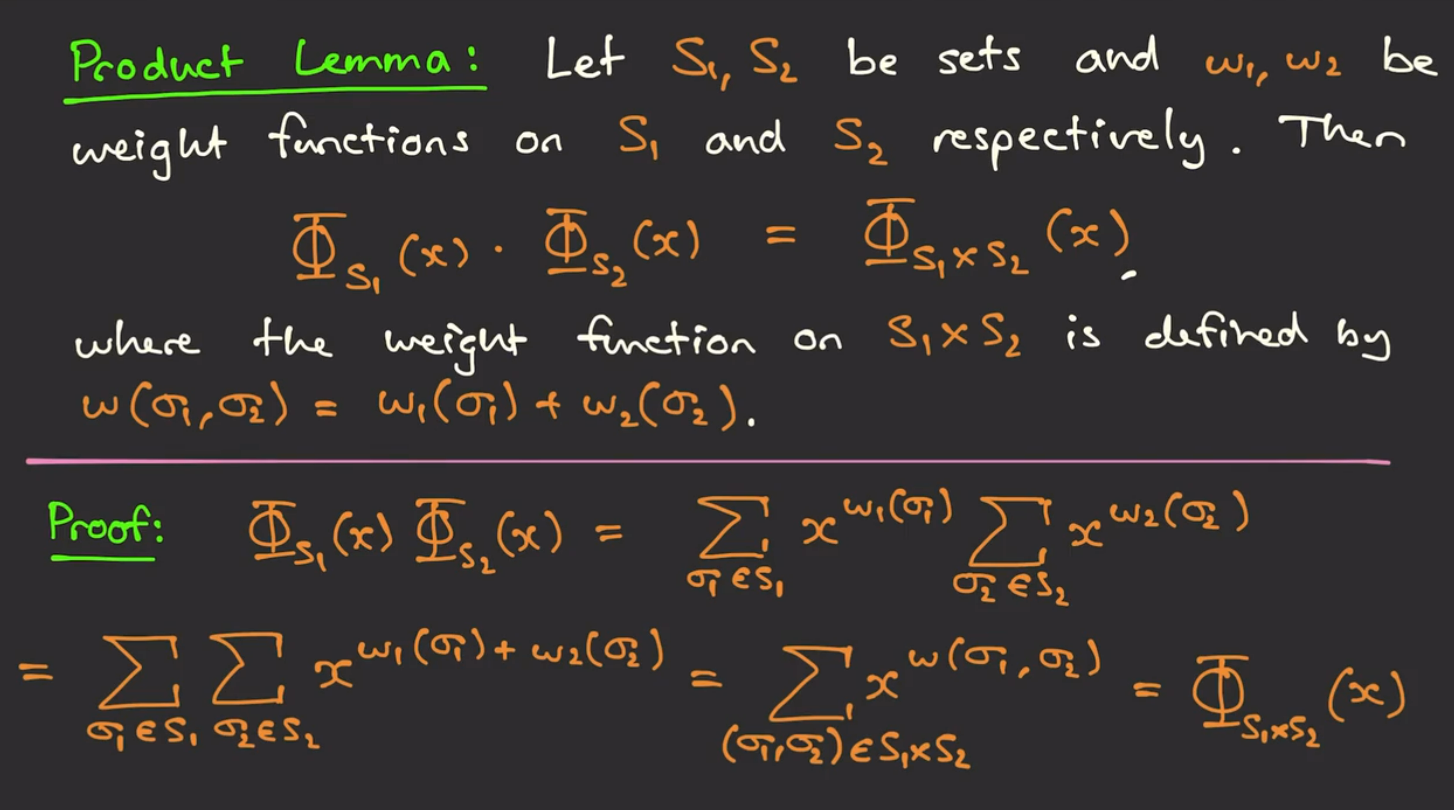 Product Lemma: Let S₁, S₂ be sets and w₁, w₂ be
weight functions on S₁ and S₂ respectively. Then
Φ_{S₁}(x) · Φ_{S₂}(x) = Φ_{S₁×S₂}(x).
where the weight function on S₁×S₂ is defined by
w(σ₁,σ₂) = w₁(σ₁) + w₂(σ₂).
Proof: Φ_{S₁}(x) Φ_{S₂}(x) = ∑_{σ₁∈S₁} x^{w₁(σ₁)} ∑_{σ₂∈S₂} x^{w₂(σ₂)}
= ∑_{σ₁∈S₁} ∑_{σ₂∈S₂} x^{w₁(σ₁)+w₂(σ₂)} = ∑_{(σ₁,σ₂)∈S₁×S₂} x^{w(σ₁,σ₂)} = Φ_{S₁×S₂}(x)